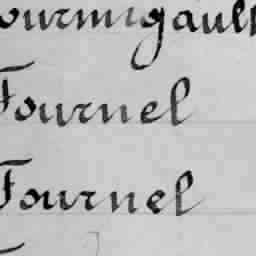 ourmigault
Fournel
Fournel